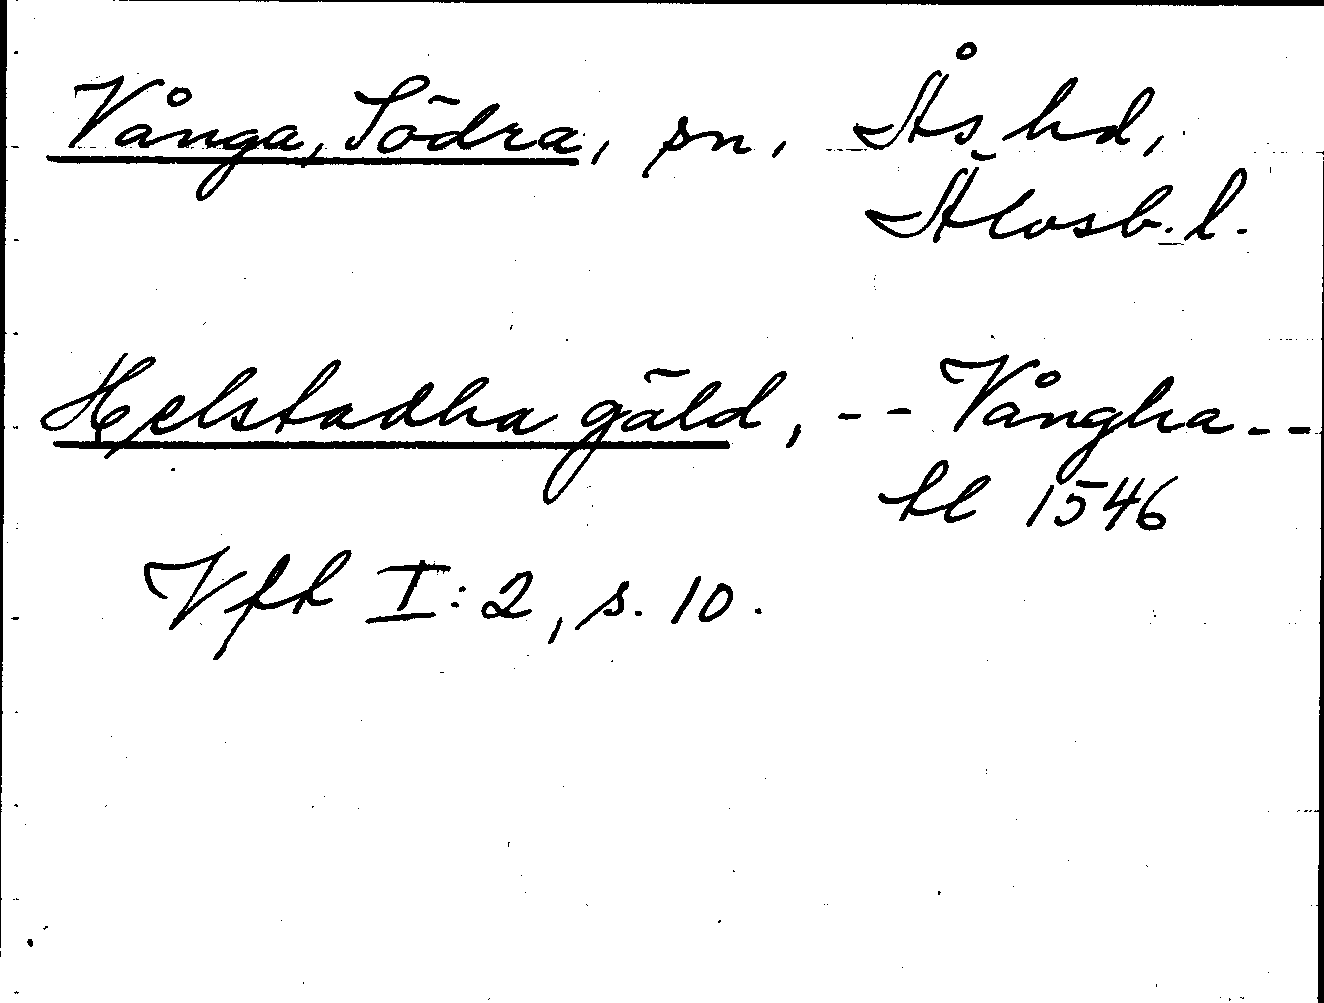 Vånga, Södra, sn, Ås hd,
Älvsb. l.
Helstadha gäld, -- Vångha --
hl 1546
Vfh I:2, s. 10.